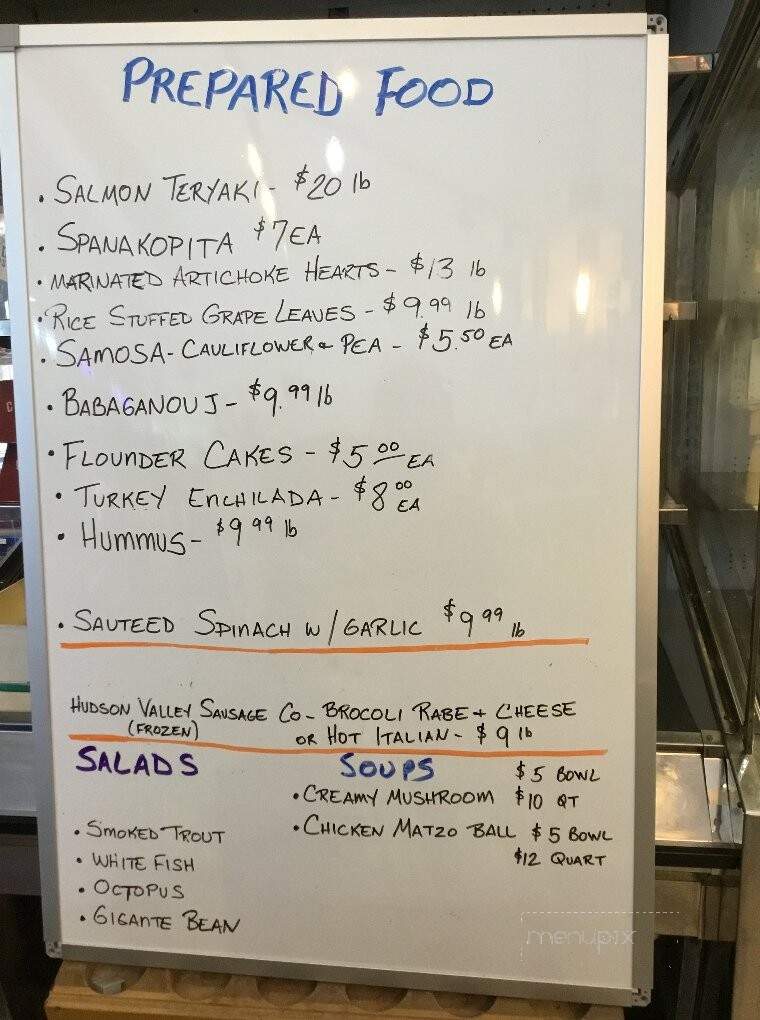 PREPARED FOOD
• SALMON TERYAKI - $20 lb
• SPANAKOPITA $7 EA
• MARINATED ARTICHOKE HEARTS - $13 lb
• RICE STUFFED GRAPE LEAVES - $9.99 lb
• SAMOSA - CAULIFLOWER & PEA - $5.50 EA
• BABAGANOUJ - $9.99 lb
• FLOUNDER CAKES - $5.00 EA
• TURKEY ENCHILADA - $8.00 EA
• HUMMUS - $9.99 lb
• SAUTEED SPINACH W/GARLIC $9.99 lb
HUDSON VALLEY SAUSAGE CO - BROCOLI RABE + CHEESE
(FROZEN) OR HOT ITALIAN - $9 lb
SALADS
• SMOKED TROUT
• WHITE FISH
• OCTOPUS
• GIGANTE BEAN
SOUPS $5 BOWL
• CREAMY MUSHROOM $10 QT
• CHICKEN MATZO BALL $5 BOWL
$12 QUART
menupix